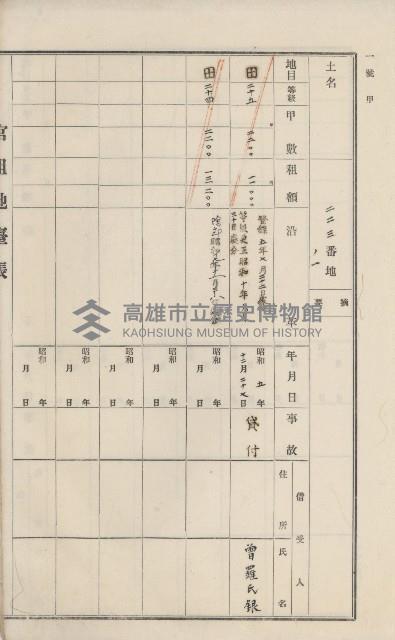 一號甲
土名
二二三番地ノ一
摘要
地目
等級
甲數
租額
沿革
年月日
事故
借受人
住所
氏名
田
二五
二二〇〇
一一〇〇〇
登錄
等級更正昭和十年
昭和五年十二月二十七日
貸付
曾羅氏銀
田
二四
二二〇〇
一三二〇〇
昭和 年 月 日
昭和 年 月 日
昭和 年 月 日
昭和 年 月 日
昭和 年 月 日
官租地臺帳
高雄市立歷史博物館
KAOHSIUNG MUSEUM OF HISTORY